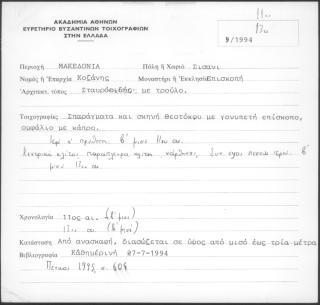 ΑΚΑΔΗΜΙΑ ΑΘΗΝΩΝ
ΕΥΡΕΤΗΡΙΟ ΒΥΖΑΝΤΙΝΩΝ ΤΟΙΧΟΓΡΑΦΙΩΝ
ΣΤΗΝ ΕΛΛΑΔΑ
11ος
13ος
9/1994
Περιοχή ΜΑΚΕΔΟΝΙΑ Πόλη ή Χωριό Σισανι
Νομός ή Ἐπαρχία Κοζάνης Μοναστήρι ή Ἐκκλησία Επισκοπή
Ἀρχιτεκτ. τύπος Σταυροειδής με τρούλο.
Τοιχογραφίες Σπαράγματα και σκηνή Θεοτόκου με γονυπετή επίσκοπο,
ομφάλιο με κάπρο.
β' μισό 11ου αι.
β'
μισό 13ου αι.
Χρονολογία 11ος αι. (β' μισό)
13ος αι. (β' μισό)
Κατάσταση Από ανασκαφή, διασώζεται σε ύψος από μισό έως τρία μέτρα
Βιβλιογραφία Καθημερινή 27-7-1994